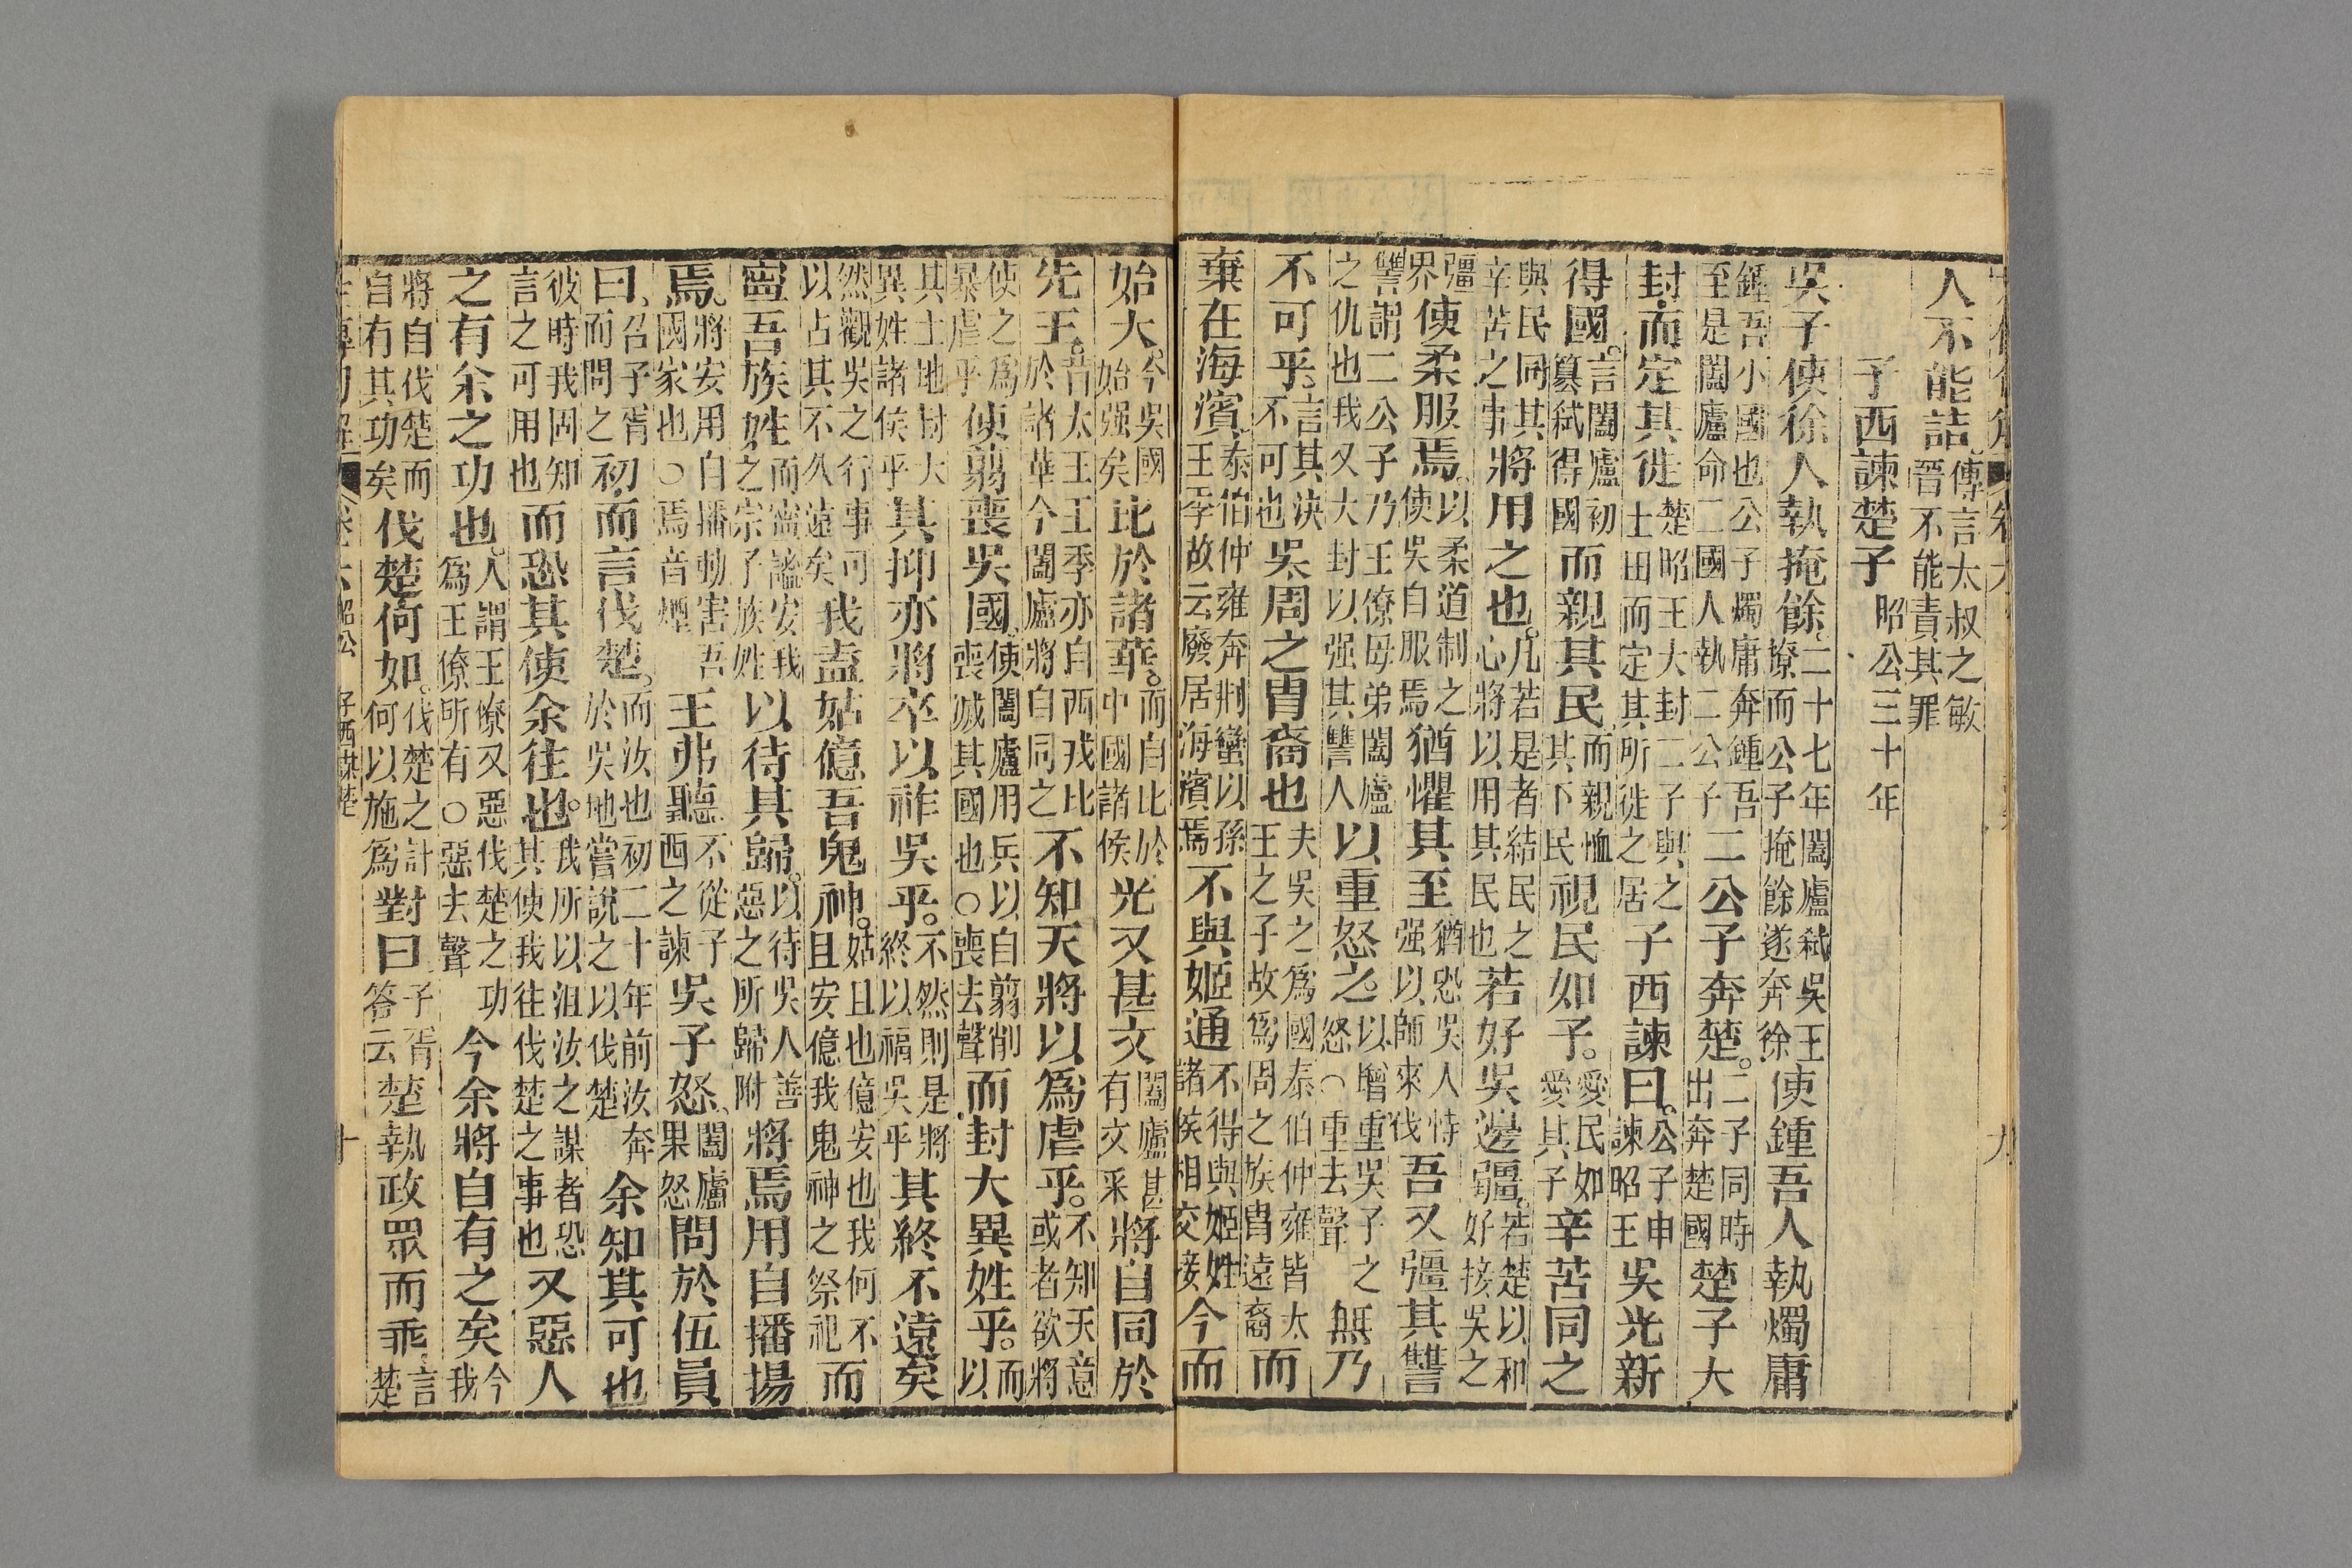 人不能詰傳言太叔之敏晉不能責其罪
子西諫楚子 昭公三十年
吳子使徐人執掩餘二十七年闔廬弒吳王僚而公子掩餘遂奔徐使鍾吾人執燭庸
鍾吾小國也公子燭庸奔鍾吾至是闔廬命二國人執二公子二公子奔楚二子同時出奔楚國楚子大
封而定其徙楚昭王大封二子與之土田而定其所徙之居子西諫曰公子申諫昭王吳光新
得國言闔廬初簒弒得國而親其民而親恤其下民視民如子愛民如愛其子辛苦同之
與民同其辛苦之事將用之也凡若是者結民之心將以用其民也若好吳邊疆若楚以和好接吳之
疆界使柔服焉以柔道制之使吳自服焉猶懼其至猶恐吳人恃强以師來伐吾又彊其讐
讐謂二公子乃王僚母弟闔廬之仇也我又大封以强其讐人以重怒之以增重吳子之怒○重去聲無乃
不可乎言其決不可也吳周之冑裔也夫吳之爲國泰伯仲雍皆太王之子故爲周之族冑遠裔而
棄在海濱泰伯仲雍奔荆蠻以孫王季故云廢居海濱焉不與姬通不得與姬姓諸侯相交接今而
始大今吳國始强矣比於諸華而自比於中國諸侯光又甚文闔廬甚有文采將自同於
先王昔太王王季亦自西戎比於諸華今闔廬將自同之不知天將以爲虐乎不知天意或者欲將
使之爲暴虐乎使翦喪吳國使闔廬用兵以自翦削喪滅其國也○喪去聲而封大異姓乎而以
其土地封大異姓諸侯乎其抑亦將卒以祚吳乎不然則是將終以福吳乎其終不遠矣
然觀吳之行事可以占其不久遠矣我盍姑億吾鬼神姑且也億安也我何不且安億我鬼神之祭祀而
寧吾族姓而寧謐安我之宗子族姓以待其歸以待吳人善惡之所歸附將焉用自播揚
焉將安用自播動害吾國家也○焉音煙王弗聽不從子西之諫吳子怒闔廬果怒問於伍員
曰召子胥而問之初而言伐楚而汝也初二十年前汝奔於吳地嘗說之以伐楚余知其可也
彼時我固知言之可用也而恐其使余往也我所以沮汝之謀者恐其使我往伐楚之事也又惡人
之有余之功也人謂王僚又惡伐楚之功爲王僚所有○惡去聲今余將自有之矣今我
將自伐楚而自有其功矣伐楚何如伐楚之計何以施爲對曰子胥答云楚執政眾而乖言楚